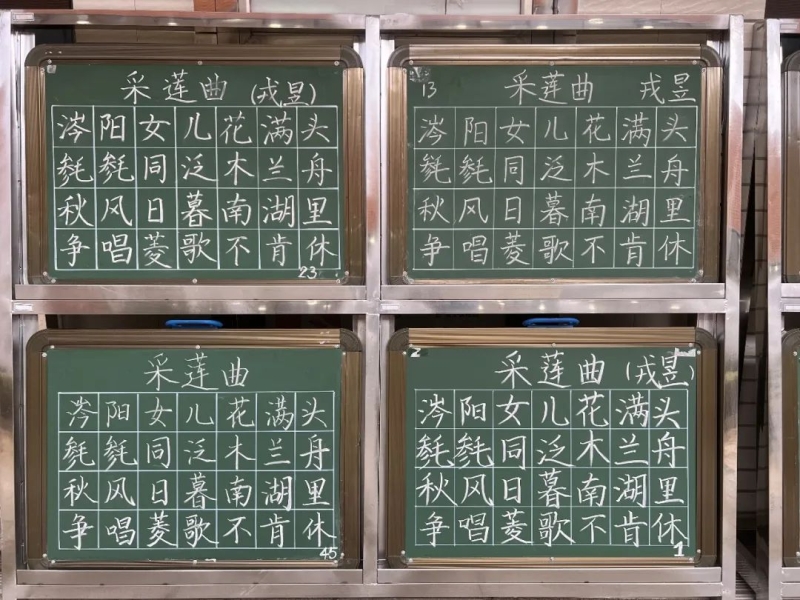 采莲曲 (戎昱)
涔阳女儿花满头
毵毵同泛木兰舟
秋风日暮南湖里
争唱菱歌不肯休
23
13
采莲曲 戎昱
涔阳女儿花满头
毵毵同泛木兰舟
秋风日暮南湖里
争唱菱歌不肯休
采莲曲
涔阳女儿花满头
毵毵同泛木兰舟
秋风日暮南湖里
争唱菱歌不肯休
45
2
采莲曲 (戎昱)
涔阳女儿花满头
毵毵同泛木兰舟
秋风日暮南湖里
争唱菱歌不肯休
1